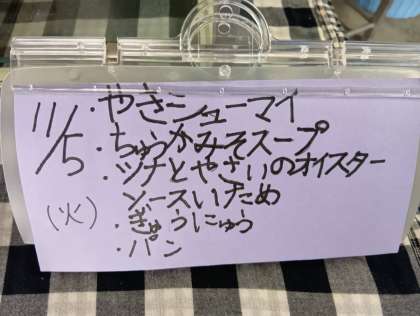 11/5 ・やきシューマイ
・ちゅうかみそスープ
・ツナとやさいのオイスター
ソースいため
(火) ・ぎゅうにゅう
・パン